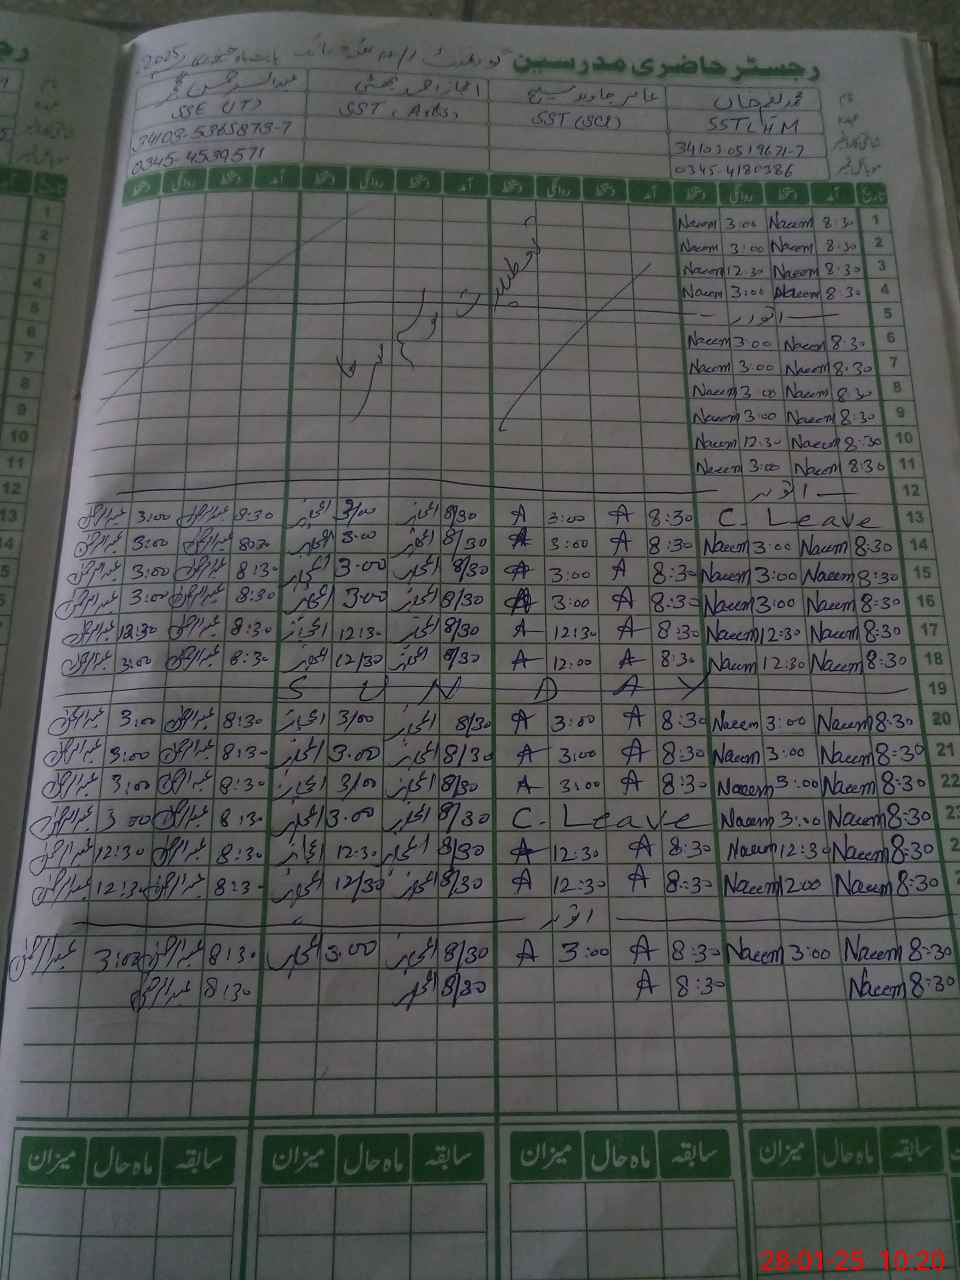 رجسٹر حاضری مدرسین
2025
نام محمد نعیم خان عامر جاوید مسیح اعجاز احمد بھٹی
عہدہ SST (HM SST (SCI) SST (Arts) SSE (IT)
شناختی کارڈ نمبر 34103 0519671-7 34103-5365873-7
موبائل نمبر 0345-4180386 0345-4539571
تاریخ آمد دستخط روانگی دستخط آمد دستخط روانگی دستخط آمد دستخط روانگی دستخط آمد دستخط روانگی دستخط
1 8:30 Naeem 3:00 Naeem
2 8:30 Naeem 3:00 Naeem
3 8:30 Naeem 12:30 Naeem
4 8:30 Naeem 3:00 Naeem
5 اتوار
6 8:30 Naeem 3:00 Naeem
7 8:30 Naeem 3:00 Naeem
8 8:30 Naeem 3:00 Naeem
9 8:30 Naeem 3:00 Naeem
10 8:30 Naeem 12:30 Naeem
11 8:30 Naeem 3:00 Naeem
تعطیلات
12 اتوار
13 C. Leave 8:30 A 3:00 A 8/30 اعجاز 3/00 اعجاز 8:30 3:00
14 8:30 Naeem 3:00 Naeem 8:30 A 3:00 A 8/30 اعجاز 3:00 اعجاز 8:30 3:00
15 8:30 Naeem 3:00 Naeem 8:30 A 3:00 A 8/30 اعجاز 3:00 اعجاز 8:30 3:00
16 8:30 Naeem 3:00 Naeem 8:30 A 3:00 A 8/30 اعجاز 3:00 اعجاز 8:30 3:00
17 8:30 Naeem 12:30 Naeem 8:30 A 12:30 A 8/30 اعجاز 12:30 اعجاز 8:30 12:30
18 8:30 Naeem 12:30 Naeem 8:30 A 12:00 A 8/30 اعجاز 12/30 اعجاز 8:30 3:00
19 SUNDAY
20 8:30 Naeem 3:00 Naeem 8:30 A 3:00 A 8/30 اعجاز 3/00 اعجاز 8:30 3:00
21 8:30 Naeem 3:00 Naeem 8:30 A 3:00 A 8/30 اعجاز 3:00 اعجاز 8:30 3:00
22 8:30 Naeem 3:00 Naeem 8:30 A 3:00 A 8/30 اعجاز 3/00 اعجاز 8:30 3:00
8:30 Naeem 3:00 Naeem C. Leave 8/30 اعجاز 3:00 اعجاز 8:30 3:00
8:30 Naeem 12:30 Naeem 8:30 A 12:30 A 8/30 اعجاز 12:30 اعجاز 8:30 12:30
8:30 Naeem 12:00 Naeem 8:30 A 12:30 A 8/30 اعجاز 12/30 اعجاز 8:30 12:30
اتوار
8:30 Naeem 3:00 Naeem 8:30 A 3:00 A 8/30 اعجاز 3:00 اعجاز 8:30 3:00
8:30 Naeem 8:30 A 8/30 اعجاز 8:30
سابقہ ماہ حال میزان سابقہ ماہ حال میزان سابقہ ماہ حال میزان سابقہ ماہ حال میزان
28-01-25 10:20